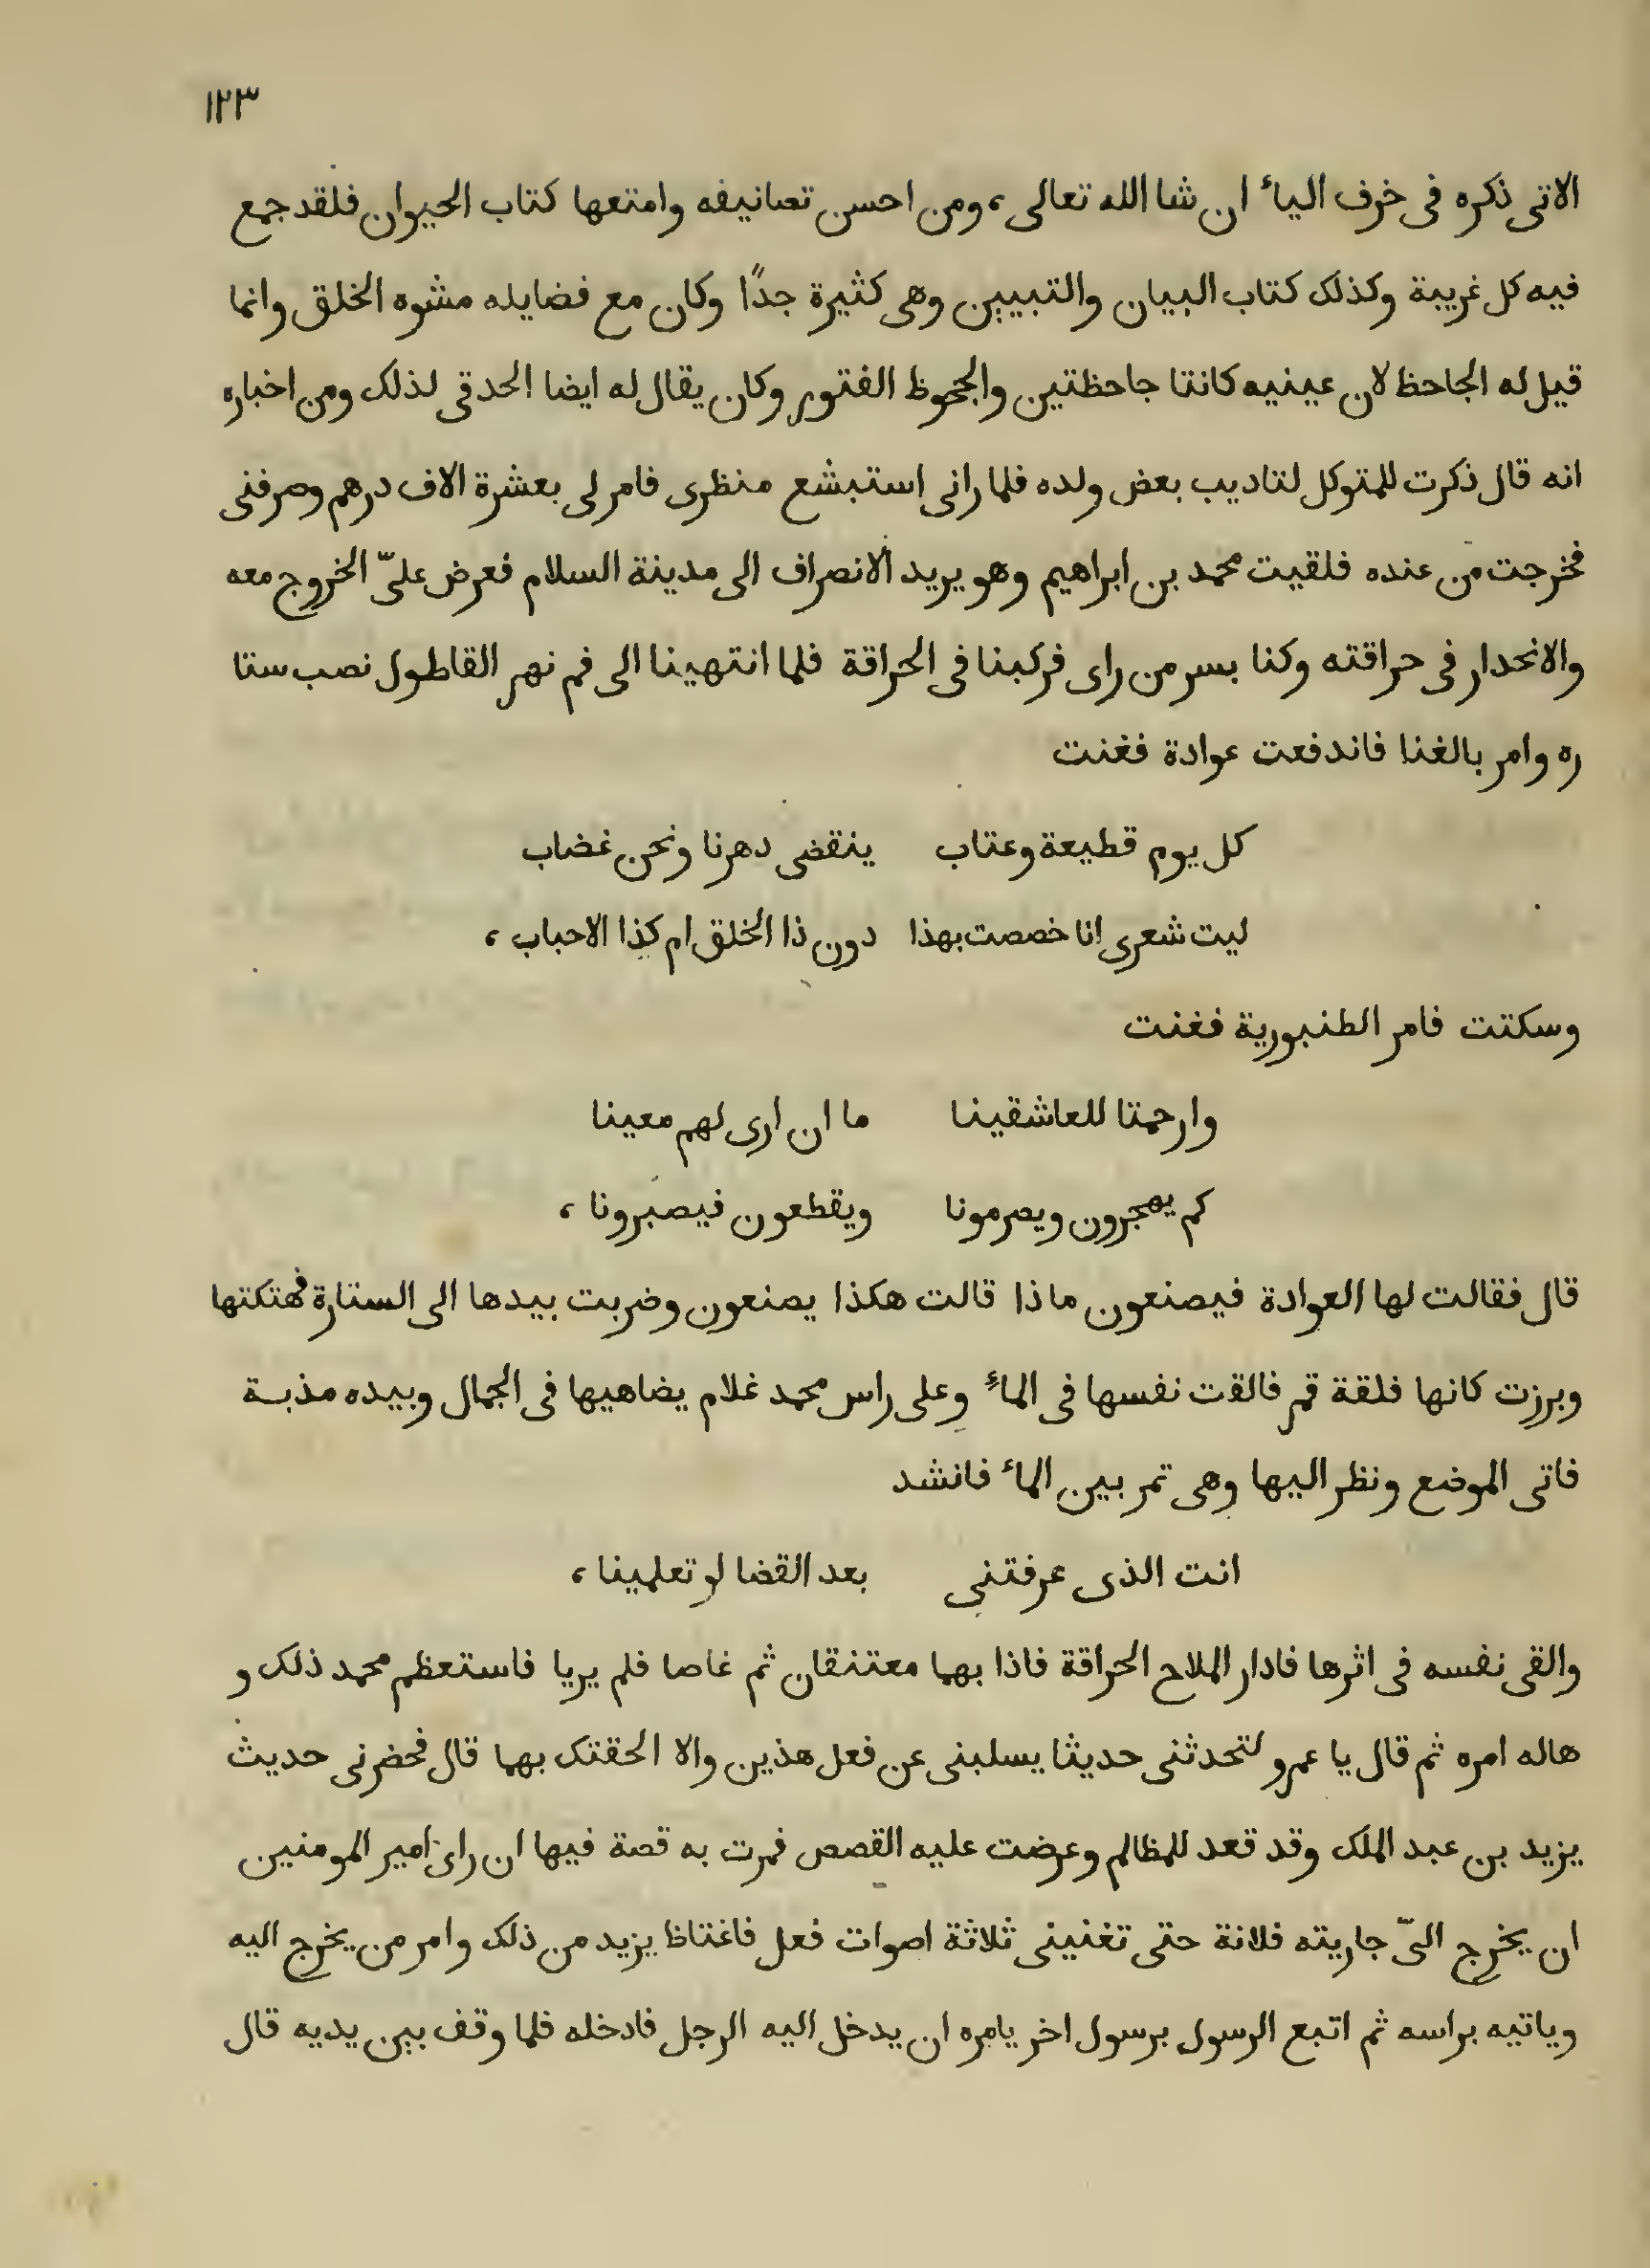 ١٢٣
الاتى ذكره فى خرف الياء ان شا الله تعالى، ومن احسن تصانيفه وامتعها كتاب الحيوان فلقد جمع
فيه كل غريبة وكذلك كتاب البيان والتبيين وهى كثيرة جدًا وكان مع فضايله مشوه الخلق وانما
قيل له الجاحظ لان عينيه كانتا جاحظتين والجحوظ الفتور وكان يقال له ايضا الحدقى لذلك ومن اخباره
انه قال ذكرت للمتوكل لتاديب بعض ولده فلما رانى استبشع منظرى فامر لى بعشرة الاف درهم وصرفنى
فخرجت من عنده فلقيت محمد بن ابراهيم وهو يريد الانصراف الى مدينة السلام فعرض علىّ الخروج معه
والانحدار فى حراقته وكنا بسر من راى فركبنا فى الحراقة فلما انتهينا الى فم نهر القاطول نصب ستا
ره وامر بالغنا فاندفعت عوادة فغنت
كل يوم قطيعة وعتاب ينقضى دهرنا ونحن غضاب
ليت شعرى انا خصصت بهذا دون ذا الخلق ام كذا الاحباب،
وسكتت فامر الطنبورية فغنت
وارحمتا للعاشقينا ما ان ارى لهم معينا
كم يهجرون ويصرمونا ويقطعون فيصبرونا،
قال فقالت لها العوادة فيصنعون ماذا قالت هكذا يصنعون وضربت بيدها الى الستارة فهتكتها
وبرزت كانها فلقة قمر فالقت نفسها فى الماء وعلى راس محمد غلام يضاهيها فى الجمال وبيده مذبة
فاتى الموضع ونظر اليها وهى تمر بين الماء فانشد
انت الذى عرفتنى بعد القضا لو تعلمينا،
والقى نفسه فى اثرها فادار الملاح الحراقة فاذا بهما معتنقان ثم غاصا فلم يريا فاستعظم محمد ذلك و
هاله امره ثم قال يا عمرو لتحدثنى حديثا يسلبنى عن فعل هذين والا الحقتك بهما قال فحضرنى حديث
يزيد بن عبد الملك وقد قعد للمظالم وعرضت عليه القصص فمرت به قصة فيها ان راى امير المومنين
ان يخرج الىّ جاريته فلانة حتى تغنينى ثلاثة اصوات فعل فاغتاظ يزيد من ذلك وامر من يخرج اليه
وياتيه براسه ثم اتبع الرسول برسول اخر يامره ان يدخل اليه الرجل فادخله فلما وقف بين يديه قال